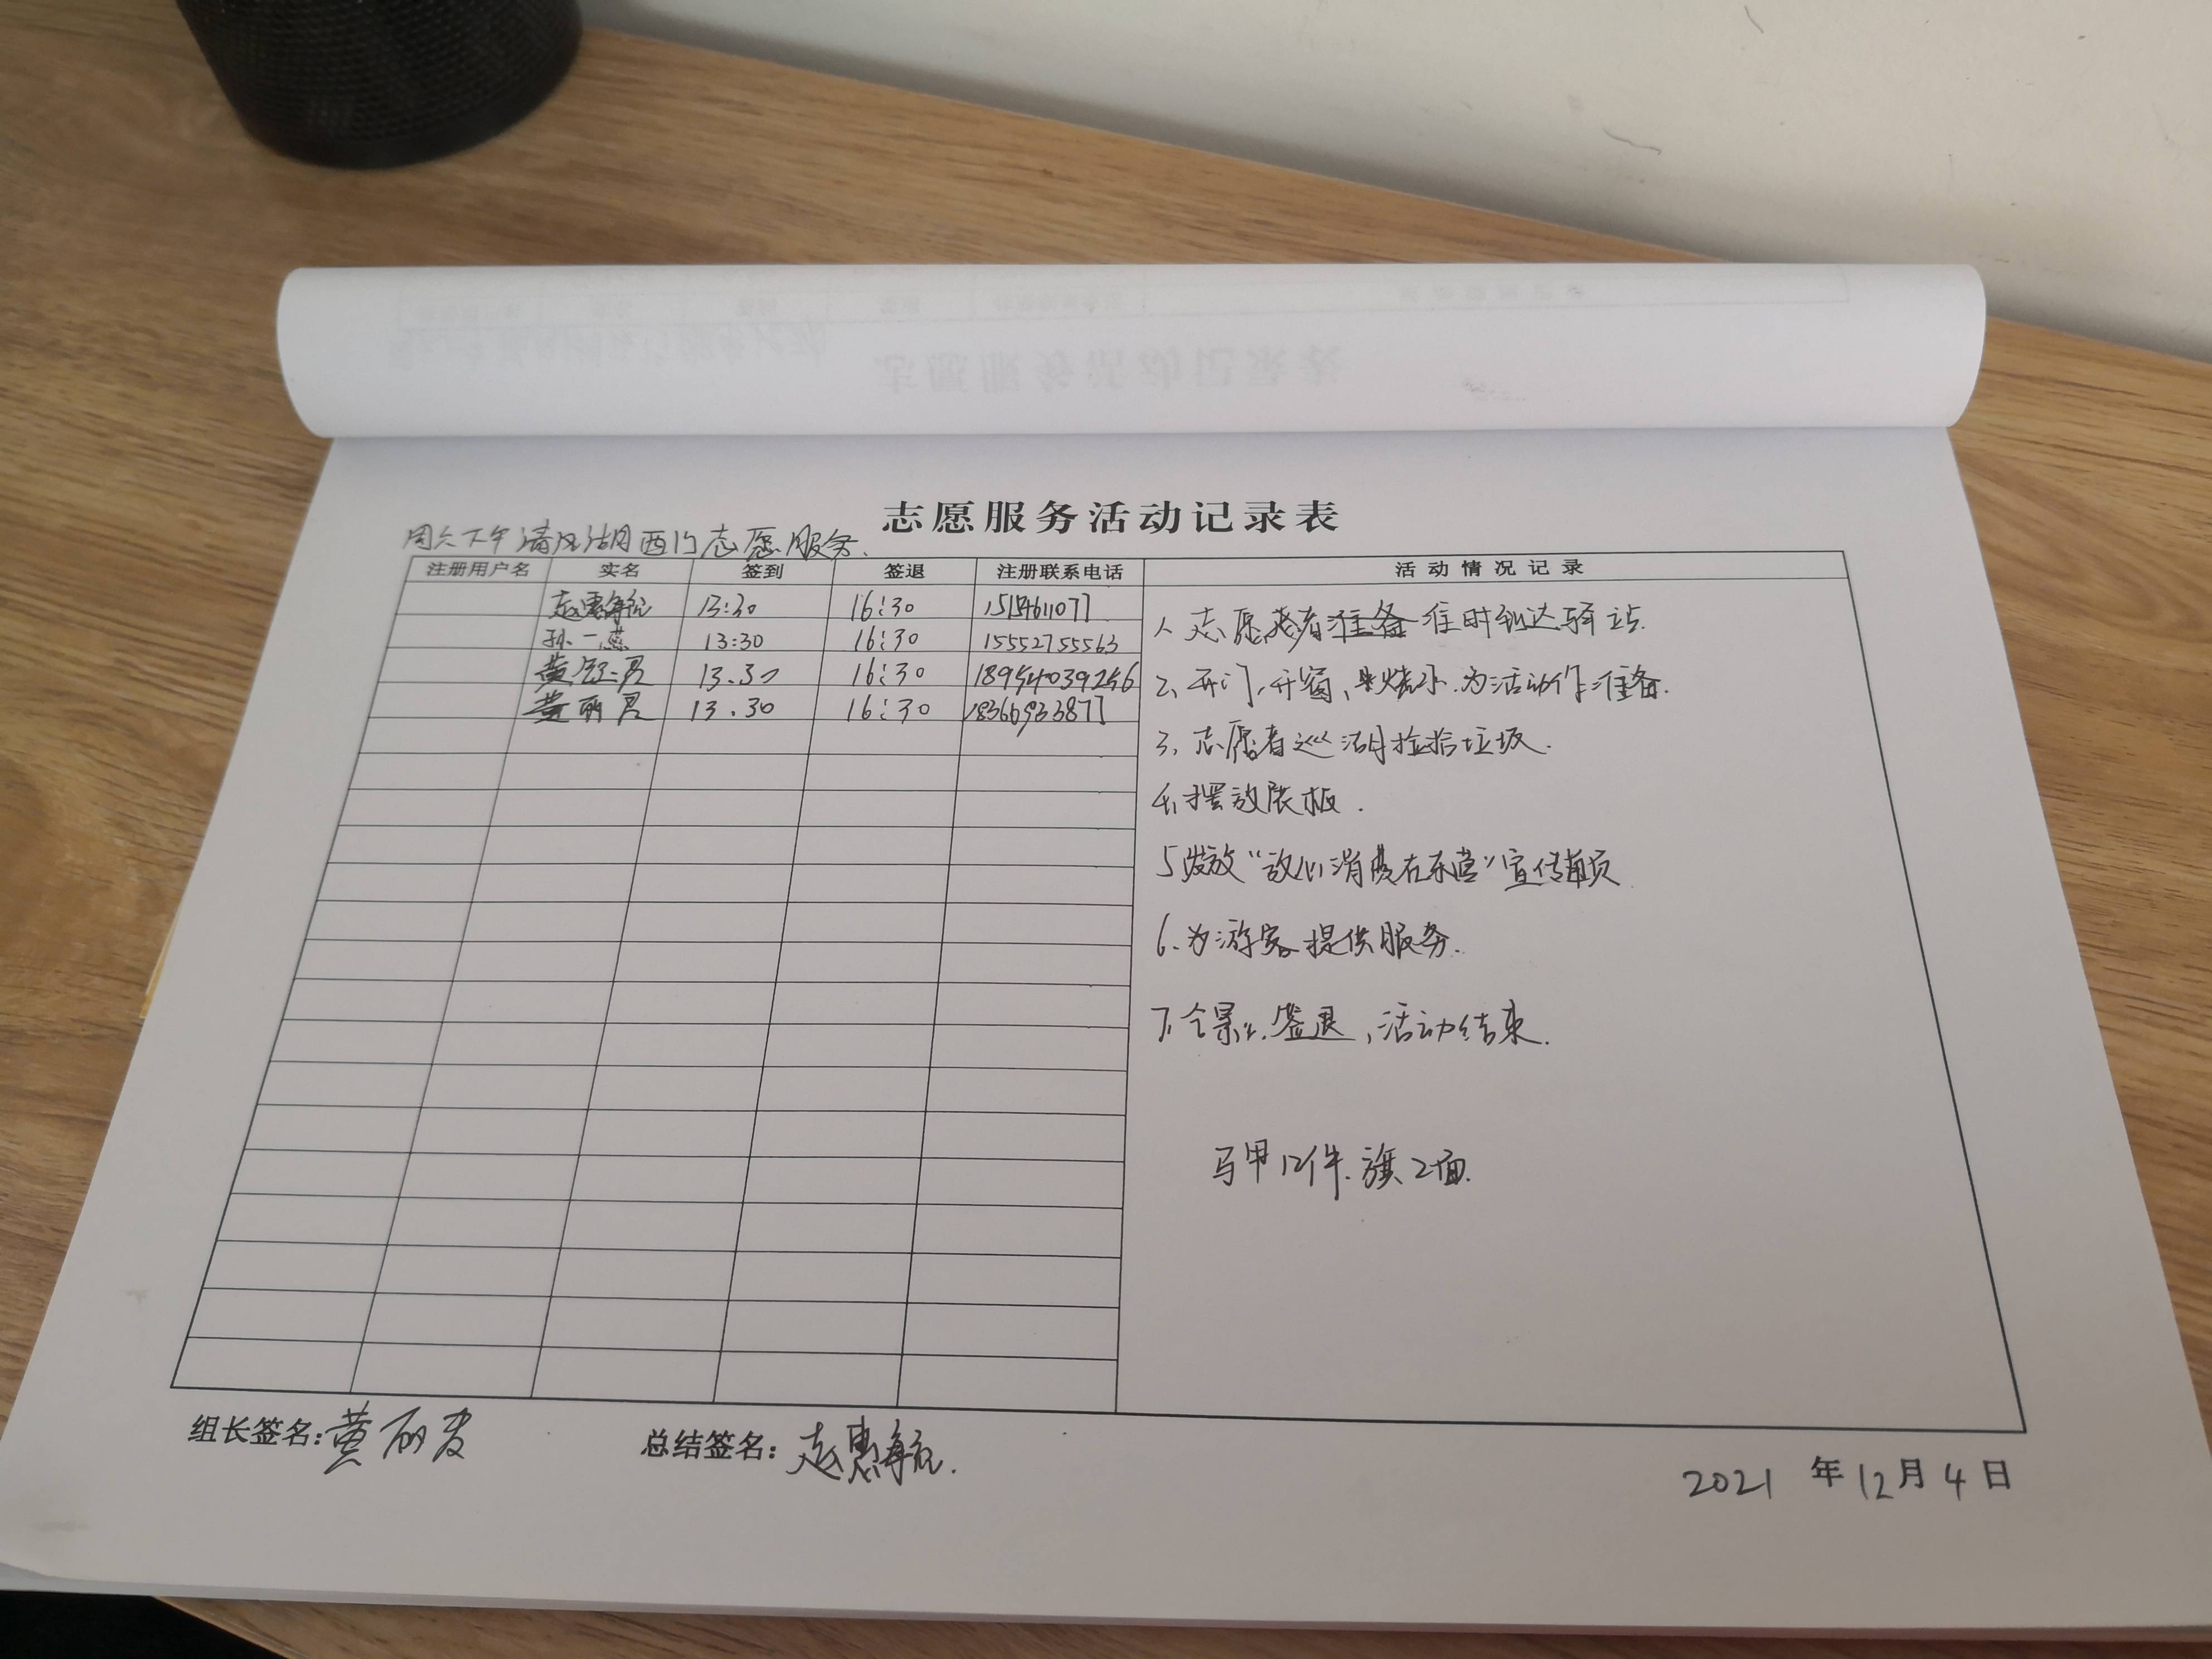 志愿服务活动记录表
周六下午清风湖西门志愿服务.
注册用户名 实名 签到 签退 注册联系电话 活动情况记录
赵惠海航 13:30 16:30
孙一蕊 13:30 16:30 15552755563
黄 13.30 16:30 18954039256
黄丽君 13.30 16:30 18366933877
1、志愿者准备准时到达驿站.
2、开门,开窗,烧水.为活动作准备.
3、志愿者巡湖捡拾垃圾.
4、摆放展板.
5发放“放心消费在东营”宣传单页
6.为游客提供服务.
7、合影、签退,活动结束.
马甲12件.旗2面.
组长签名:黄丽君 总结签名:赵惠海航.
2021 年 12 月 4 日